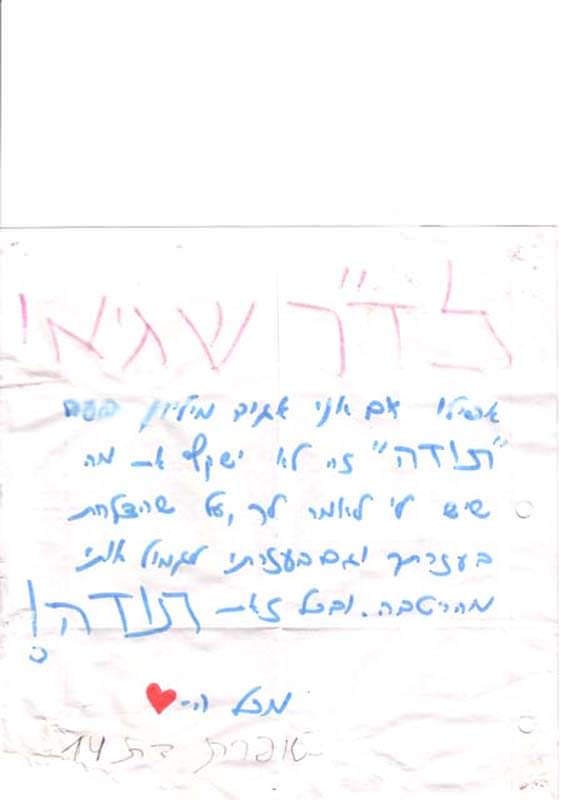 לד"ר שגיא
אפילו אם אני אגיד מיליון פעם
"תודה" זה לא ישקף את מה
שיש לי לאמר לך, על שהצלחת
בעזרתך וגם בעזרתי לגמול אותי
מהרטבה. ובכל זאת תודה!
מכל ה-
עופרית בת 14